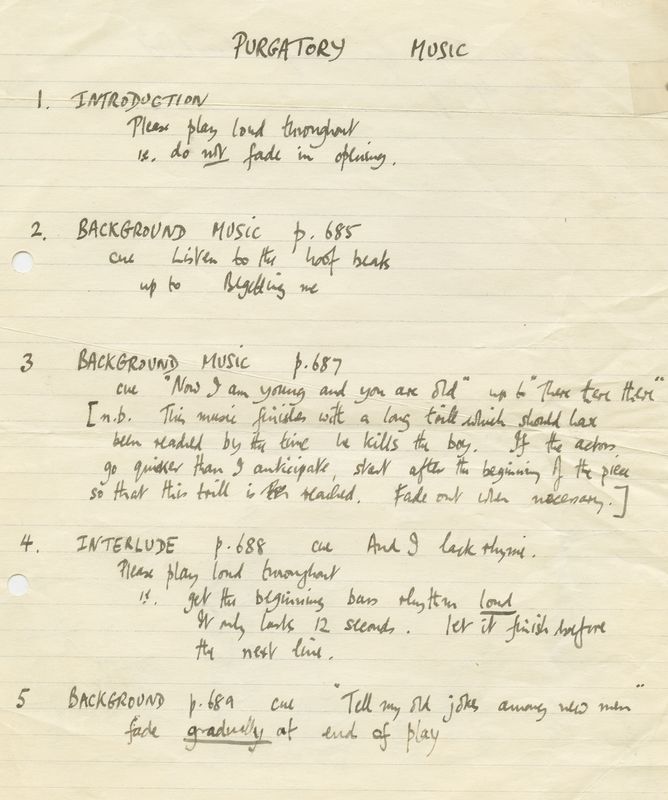 PURGATORY MUSIC
1. INTRODUCTION
Please play loud throughout
ie. do not fade in opening.
2. BACKGROUND MUSIC p. 685
cue Listen to the hoof beats
up to Begetting me
3 BACKGROUND MUSIC p.687
cue "Now I am young and you are old" up to "There there there"
[n.b. This music finishes with a long trill which should have
been reached by the time he kills the boy. If the actors
go quicker than I anticipate, start after the beginning of the piece
so that this trill is reached. Fade out when necessary.]
4. INTERLUDE p.688 cue And I lack rhyme.
Please play loud throughout
ie. get the beginning bass rhythm loud
It only lasts 12 seconds. let it finish before
the next line.
5 BACKGROUND p.689 cue "Tell my old jokes among new men"
fade gradually at end of play